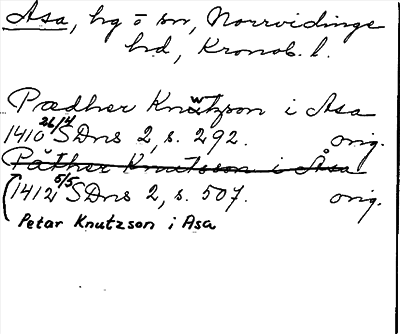 Asa, hg o sn, Norrvidinge
hd, Kronob. l.
Pædher Knwtzson i Asa
1410 26/14 SDns 2, s. 292. orig.
Påther Knutsson i Åsa
1412 5/5 SDns 2, s. 507. orig.
Petar Knutzson i Asa